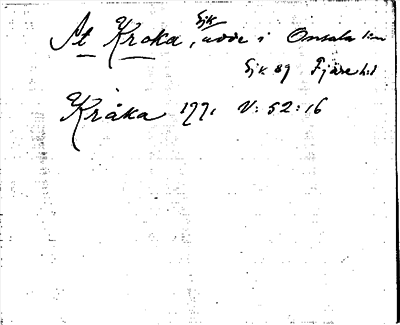 St Kroka, Sjk udde i Onsala sn
Sjk 89 Fjäre hd
Kråka 1771 V: 52: 16